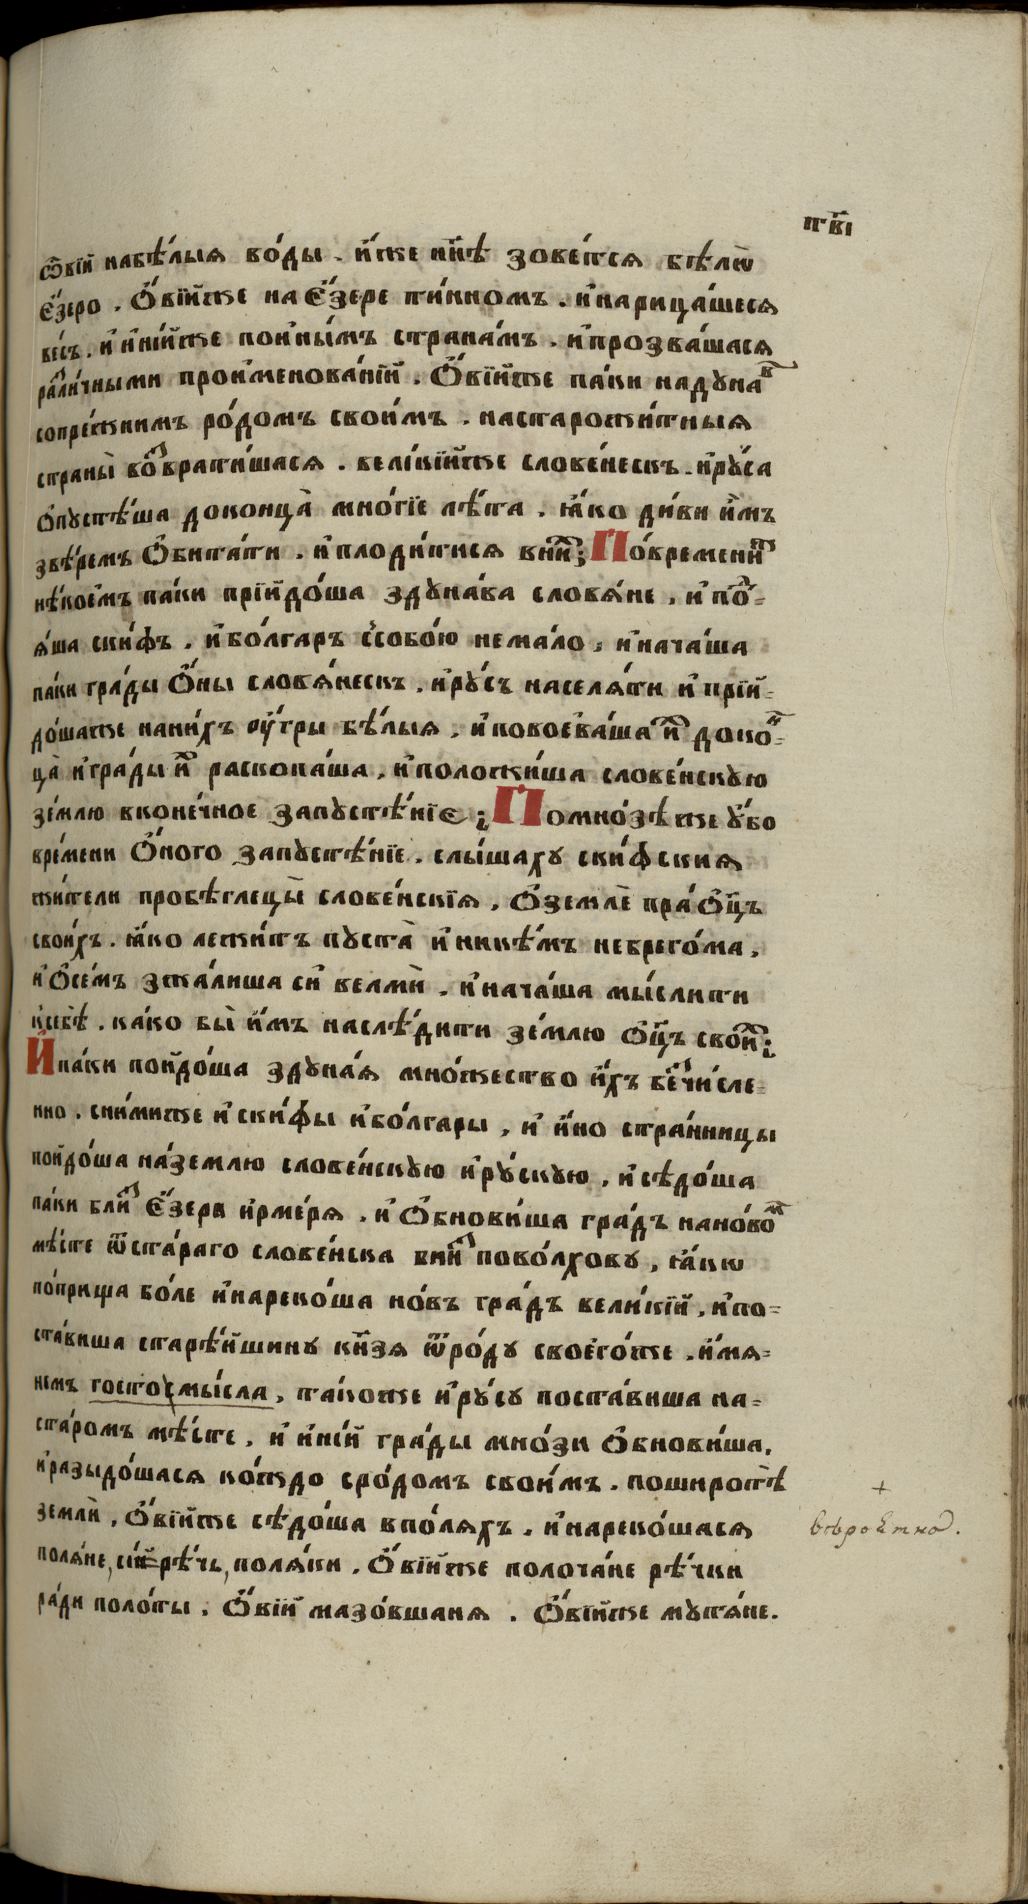 тв҃і
ѡ҆вїи набѣ́лыя во́ды. и҆́же нн҃ѣ зове́тся бѣ́лѡ
е҆́зеро. Ѻ҆́вїйже на Е҆́зере ти́нномъ. и҆нарица́шеся
ве́сь. и҆ и҆ні́йже поины́мъ страна́мъ. и҆прозва́шася
разли́чными проименова́нїй. Ѻ҆́вїйже па́ки надуна́в
сопре́жнимъ ро́домъ свои́мъ. настарожи́тныя
страны̀ возврати́шася. вели́кїйже слове́нескъ. и҆ру́са
ѻ҆пустѣ́ша доконца̀ мно́гїе лѣ́та. ꙗ҆́ко ди́вїи и҆̀мъ
звѣ́ремъ Ѻ҆бита́ти. и҆плоди́тися вни́х; По́времени же
нѣ́коемъ па́ки прїидо́ша здуна́ва словѧ́не. и҆ поѧ́-
ѧ́ша ски́фъ. и҆бо́лгаръ ссобо́ю нема́ло, и҆нача́ша
па́ки гра́ды Ѻ҆́ны словѧ́нескъ. и҆ру́съ населѧ́ти и҆ прїи-
до́шаже нани́хъ ᲂу҆́гры бѣ́лыя, и҆повоева́ша и҆х доко́н-
ца̀ и҆гра́ды и҆х раскопа́ша, и҆положи́ша слове́нскую
зе́млю вконе́чное запустѣ́нїе; Помно́зѣже у҆́бо
вре́мени Ѻ҆́ного запустѣ́нїе. слы́шаху ски́фския
жи́тели пробѣглецы̀ слове́нскїя, Ѻ҆земле̏ пра́Ѻ҆ц҃ъ
свои́хъ. ꙗ҆́ко лежи́тъ пуста̀ и҆ никѣ́мъ небрего́ма,
и҆ Ѻ҆се́мъ зжа́лиша си́ велми̏. и҆нача́ша мы́слити
ксебѣ̀. ка́ко бы̀ и҆́мъ наслѣ́дити зе́млю Ѻ҆ц҃ъ свои́х;
И҆́паки поидо́ша здуна́я мно́жество и҆́хъ безчи́сле-
нно. сни́миже и҆ски́фы и҆бо́лгары, и҆ и҆́но стра́нницы
поидо́ша на́землю слове́нскую и҆ру́скую, и҆ сѣдо́ша
па́ки близ Е҆́зера и҆рме́ря. и҆ Ѻ҆бнови́ша гра́дъ нано́вом
мѣ́сте ѿста́раго слове́нска вниз пово́лхову, ꙗ҆́кѡ
по́прища бо́ле и҆нареко́ша но́въ гра́дъ вели́кїй, и҆по-
ста́виша старѣ́йшину кн҃зя ѿро́ду своего́же. и҆́мя-
немъ госто́мы́сла, та́коже и҆ру́су поста́виша на-
ста́ромъ мѣ́сте, и҆ и҆ні́й гра́ды мно́зи Ѻ҆бнови́ша,
и҆разыдо́шася ко́ждо сро́домъ свои́мъ. поширотѣ̀
земли̏, Ѻ҆́вїйже сѣдо́ша впо́ляхъ. и҆нареко́шася
поля́не, си́рѣчь, поля́ки. Ѻ҆́вїйже полоча́не рѣ́чки
ра́ди поло́ты. Ѻ҆́вїй мазо́вшаня. Ѻ҆́вїйже мутѧ́не.
+
вѣроѣтно.